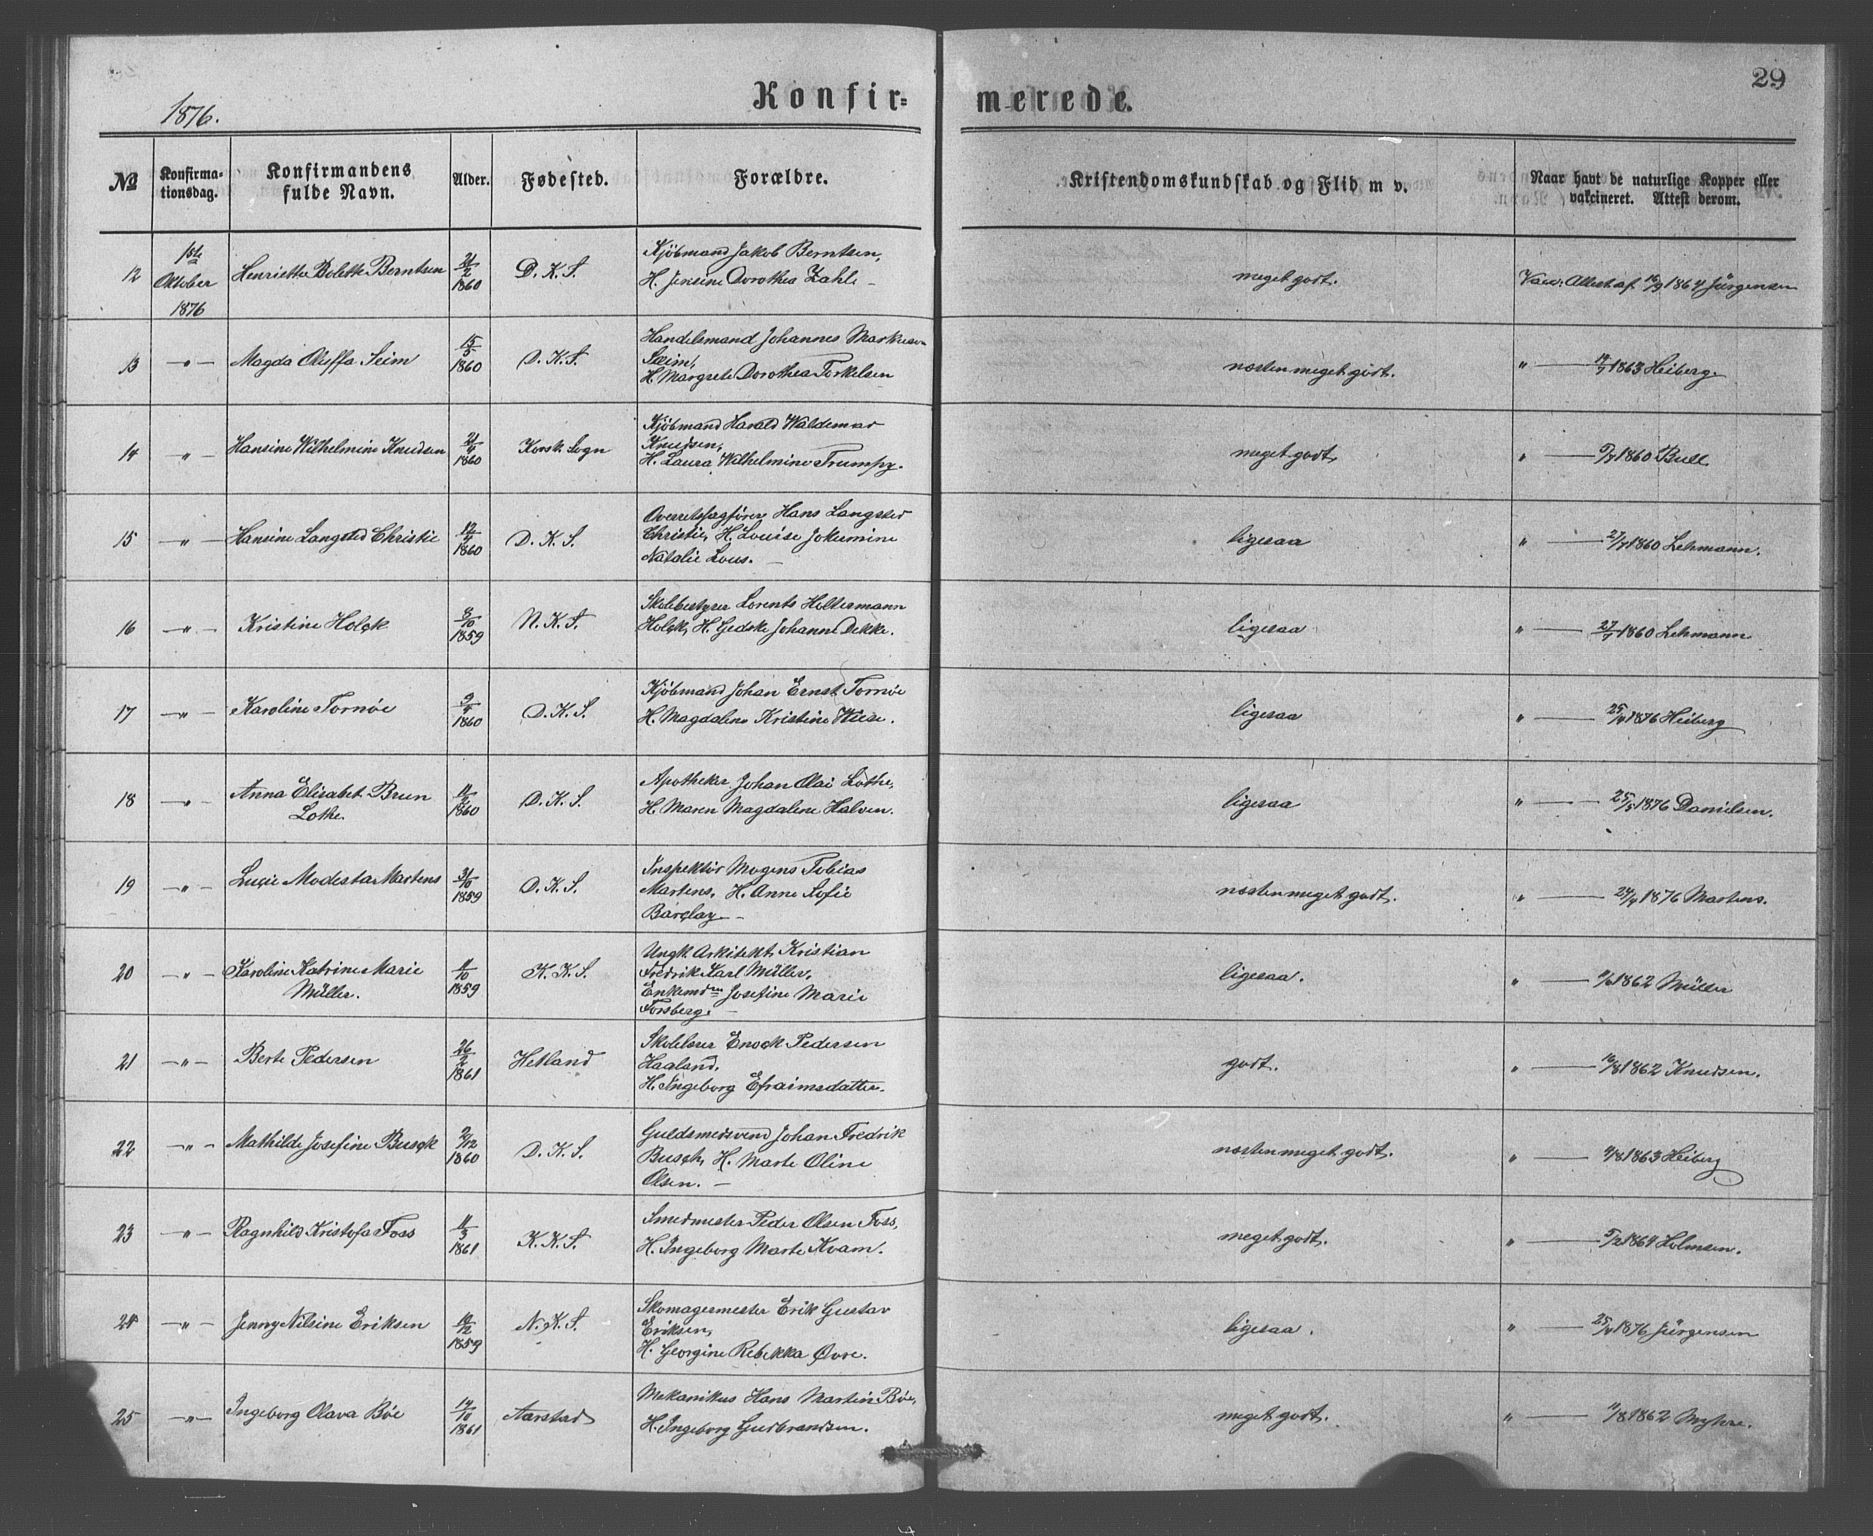 29
1876.
Konfir= merede.
№
Konfirma-
tionsdag.
Konfirmandens
fulde Navn.
Alder.
Fødested.
Forældre.
Kristendomskundskab og Flid m v.
Naar havt de naturlige Kopper eller
vakcineret. Attest derom.
12
1ste
Oktober
1876
Henriette Bolette Berntsen
21/2
1860
D. K. S.
Kjöbmand Jakob Berntsen,
H. Jensine Dorothea Zahl. –
meget godt.
Vacc. Attest af 16/9 1864 Jürgensen
13
— " —
Magda Oluffa Seim
15/5
1860
D. K. S.
Handelsmand Johannes Markusen
Sæim,
H. Margrete Dorothea Torkelsen
næsten meget godt.
" — 1863 Heiberg.
14
— " —
Hansine Wilhelmine Knudsen
21/4
1860
Korsk. Sogn
Kjöbmand Harald Waldemar
Knudsen,
H. Laura Wilhelmine Trumpy.
meget godt.
" — 1860 Bull
15
— " —
Hansine Langsted Christie
12/4
1860
D. K. S.
Overretssagförer Hans Langsted
Christie, H. Louise Jokumine
Natalie Lous. —
ligesaa
" — 27/7 1860 Lehmann.
16
— " —
Kristine Holck
8/10
1859
N. K. S.
Skolebestyrer Lorents Holtermann
Holck, H. Gedske Johanne Dekke.
ligesaa
" — 27/7 1860 Lehmann
17
— " —
Karoline Tornöe
9/4
1860
D. K. S.
Kjöbmand Johan Ernst Tornöe
H. Magdalene Kristine Wiese.
ligesaa
" — 25/4 1876 Heiberg
18
— " —
Anna Elisabet Brun
Lothe.
11/2
1860
D. K. S.
Apotheker Johan Olai Lothe,
H. Maren Magdalene Halven.
ligesaa
" — 25/5 1876 Danielsen.
19
— " —
Lucie Modesta Martens
31/10
1859
D. K. S.
Inspektör Mogens Tobias
Martens, H. Anne Sofie
Barclay. —
næsten meget godt.
" — 24/4 1876 Martens.
20
— " —
Karoline Katrine Marie
Müller.
11/10
1859
K. K. S.
Ungk. Arkitekt Kristian
Fredrik Karl Müller,
Enkemdn Josefine Marie
Forsberg. —
ligesaa.
" — 11/6 1862 Müller
21
— " —
Berte Pedersen
26/2
1861
Hetland
Skolelærer Enock Pedersen
Haaland,
H. Ingeborg Efraimsdatter.
godt.
" — 16/8 1862 Knudsen.
22
— " —
Mathilde Josefine Busck
2/12
1860
D. K. S.
Guldsmedsvend Johan Fredrik
Busch, H. Marte Oline
Olsen. —
næsten meget godt.
" — 11/8 1863 Heiberg
23
— " —
Ragnhild Kristofa Foss
11/3
1861
K. K. S.
Smedmester Peder Olsen Foss,
H. Ingeborg Marte Kvam.
meget godt.
" — 5/2 1864 Holmsen.
24
— " —
Jenny Nilsine Eriksen
12/12
1859
N. K. S.
Skomagermester Erik Gustav
Eriksen,
H. Georgine Rebekka Övre.
ligesaa.
" — 25/4 1876 Jürgensen
25
— " —
Ingeborg Olava Böe
14/10
1861
Aarstad
Mekanikus Hans Martin Böe,
H. Ingeborg Gudbrandsen.
meget godt.
" — 11/8 1862 Myhre.